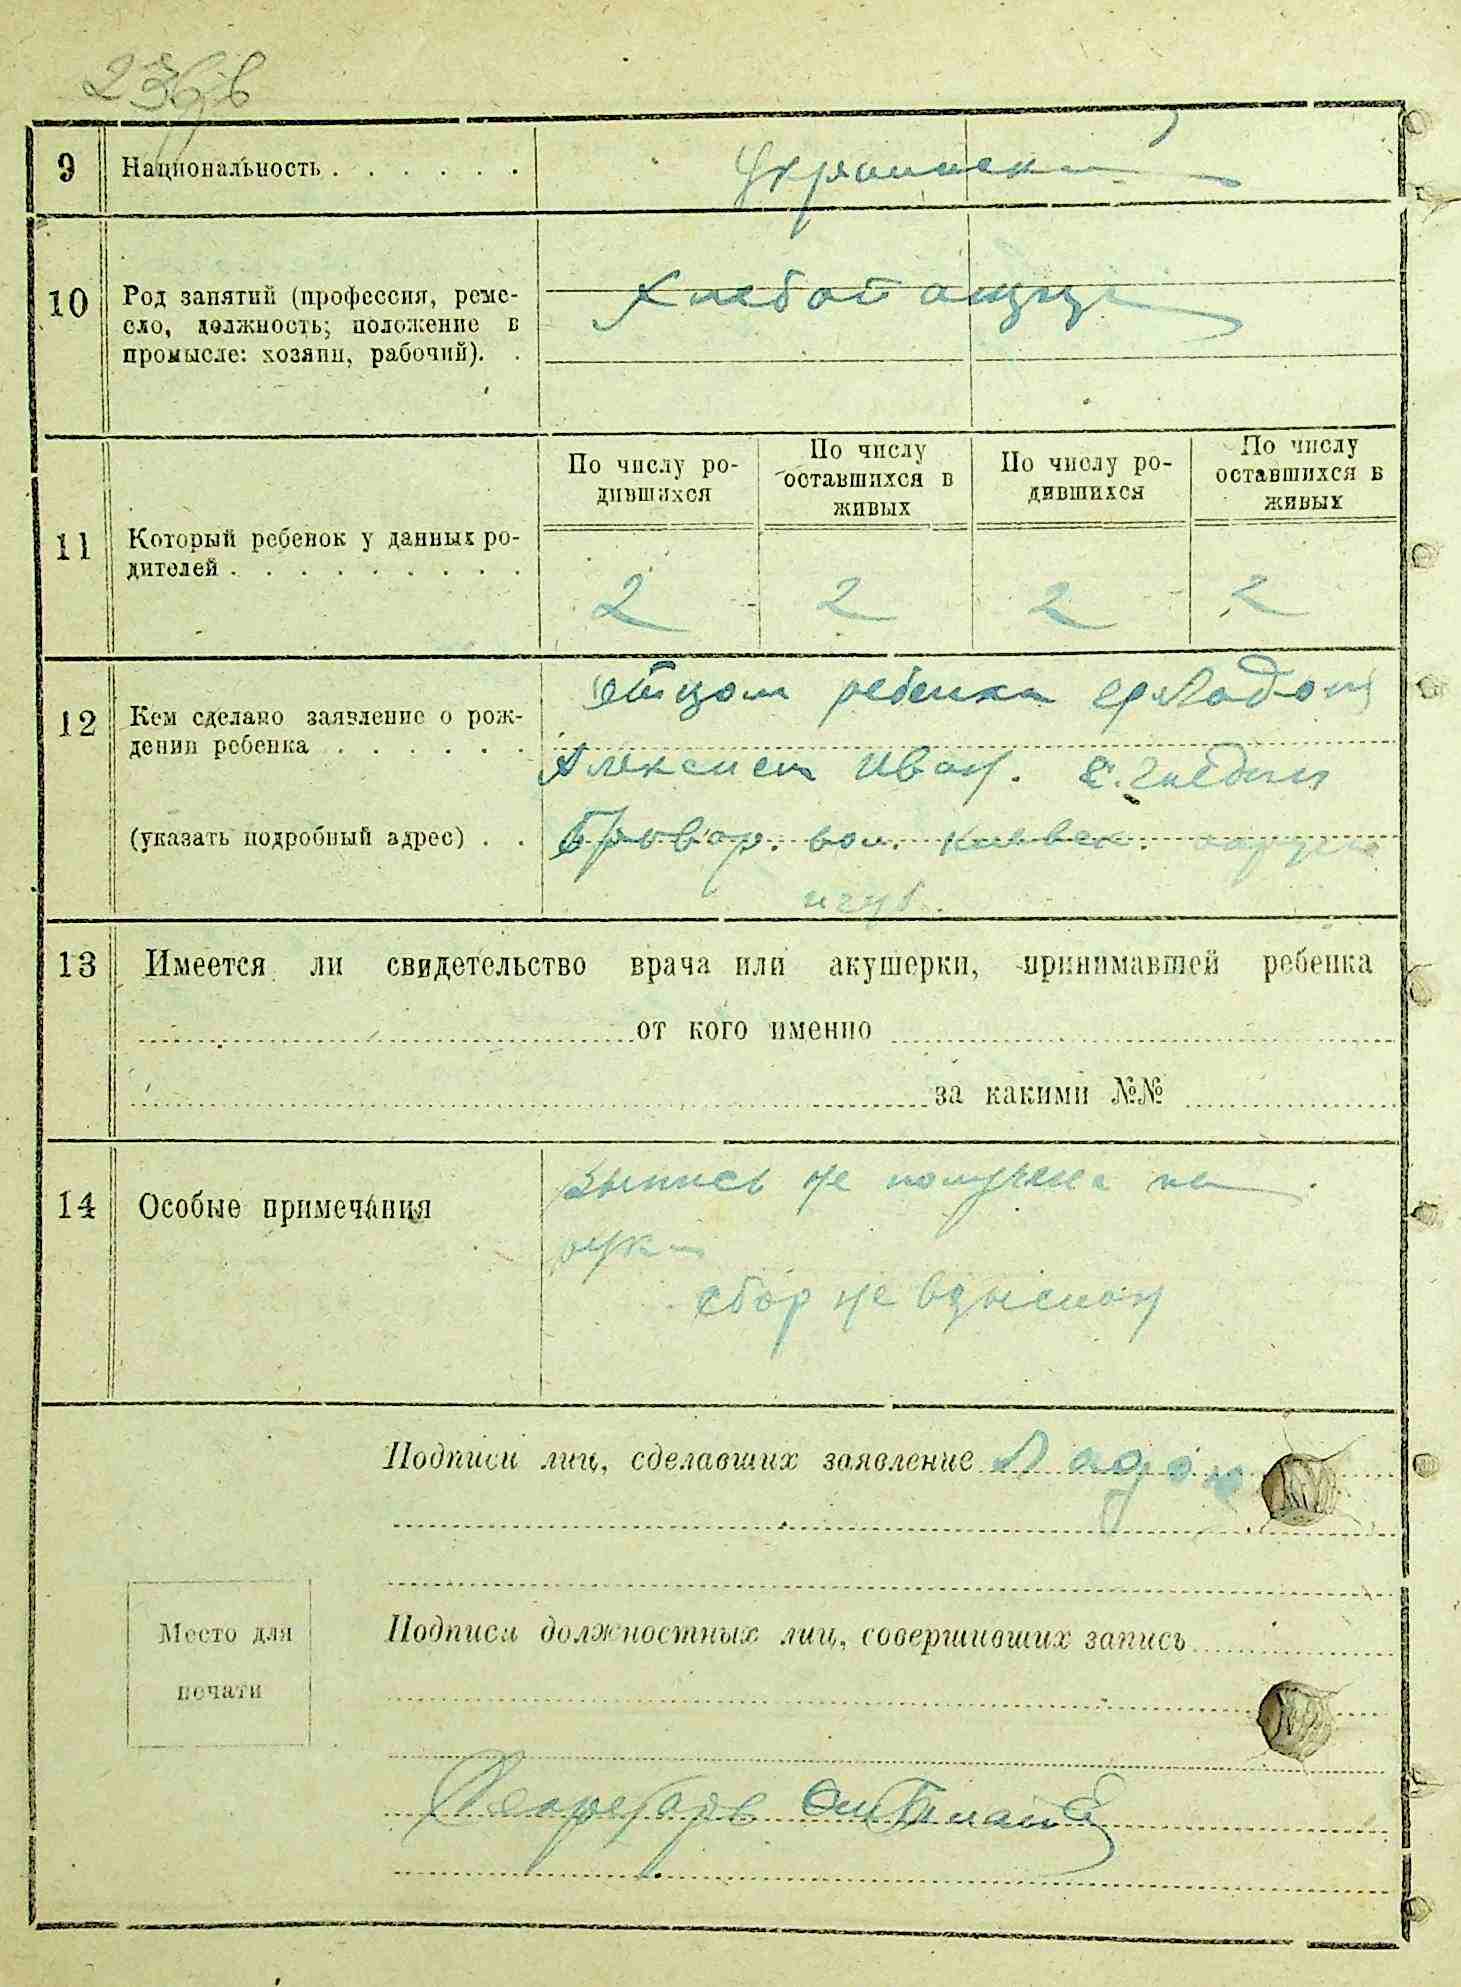 9 Национальность . . . . . . Украинская
10 Род занятий (профессия, ремес-
сло, должность; положение в
промысле: хозяин, рабочий). . Хлебопашцы
По числу ро-
дившихся
По числу
оставшихся в
живых
По числу ро-
дившихся
По числу
оставшихся в
живых
11 Который ребенок у данных ро-
дителей . . . . . . . . . 2 2 2 2
12 Кем сделано заявление о рож-
дении ребенка . . . . . .
(указать подробный адрес) . .
отцом ребенка гр Ладон
Алексеем Иван. с.
Бровар. вол. Киевск. округа
13 Имеется ли свидетельство врача или акушерки, принимавшей ребенка
от кого именно
за какими №№
14 Особые примечания
Выпись не получена на
руки
сбор не взыскан
Подписи лиц, сделавших заявление Ладон
Место для
печати
Подписи должностных лиц, совершивших запись
Секретарь